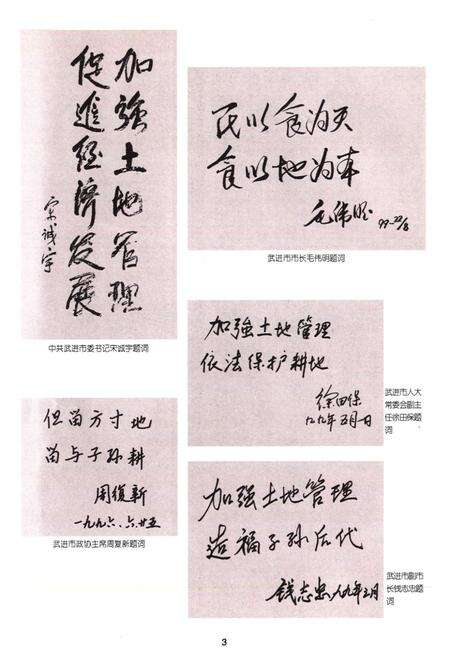 加強土地管理
促進经济发展
宋诚宇
中共武进市委书记宋诚宇题词
民以食为天
食以地为本
毛伟明
99-22/8
武进市市长毛伟明题词
加強土地管理
依法保护耕地
徐田保
武进市人大
常委会副主
任徐田保题
词
但留方寸地
留与子孙耕
周復新
一九九六.六.廿五
武进市政协主席周复新题词
加强土地管理
造福子孙后代
钱志忠
武进市副市
长钱志忠题
词
3